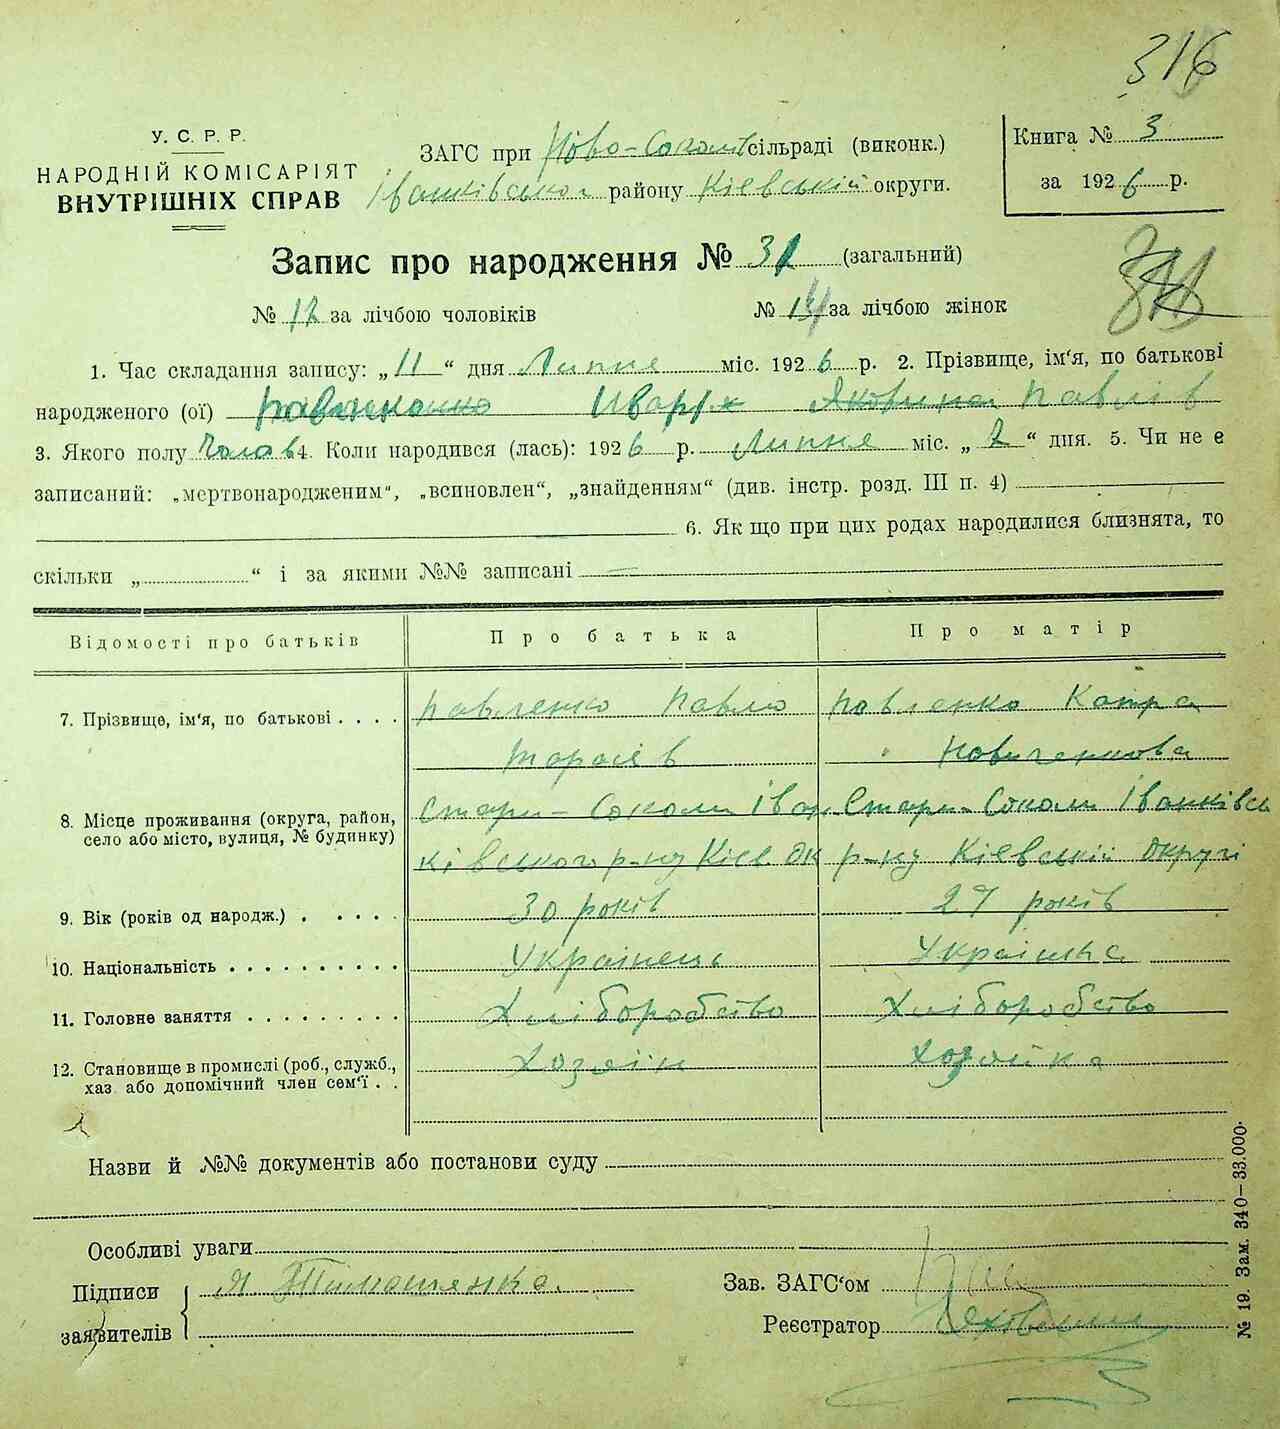 316
У. С. Р. Р.
НАРОДНІЙ КОМІСАРІЯТ
ВНУТРІШНІХ СПРАВ
ЗАГС при Ново-Сокол сільраді (виконк.)
Іванківського району Київській округи.
Книга № 3
за 1926 р.
Запис про народження № 31 (загальний)
№ 17 за лічбою чоловіків № 14 за лічбою жінок
1. Час складання запису: „11“ дня Липня міс. 1926 р. 2. Прізвище, ім'я, по батькові
народженого (ої) Павлів
3. Якого полу Чолов 4. Коли народився (лась): 1926 р. Липня міс. „2“ дня. 5. Чи не е
записаний: „мертвонародженим“, „всиновлен“, „знайденням“ (див. інстр. розд. III п. 4)
6. Як що при цих родах народилися близнята, то
скільки „ “ і за якими №№ записані
Відомості про батьків Про батька Про матір
7. Прізвище, ім'я, по батькові . . . . Павленко Павло Павленко Катра
Тарасів
8. Місце проживання (округа, район, Стари-Соколи Іван Стари-Соколи Іванківсь
село або місто, вулиця, № будинку) ківського р-ну Киів. ок р-ну Киівській округі
9. Вік (років од народж.) . . . . . 30 років 27 років
10. Національність . . . . . . . . . . Украінець Украінка
11. Головне заняття . . . . . . . . . Хліборобство Хліборобство
12. Становище в промислі (роб., служб., Хозяїн Хозяйка
хаз. або допомічний член сем'ї . .
Назви й №№ документів або постанови суду
Особливі уваги
Підписи
заявителів
Я Тимошенка.
Зав. ЗАГС'ом
Реєстратор
№ 19. Зам. 340—33.000.